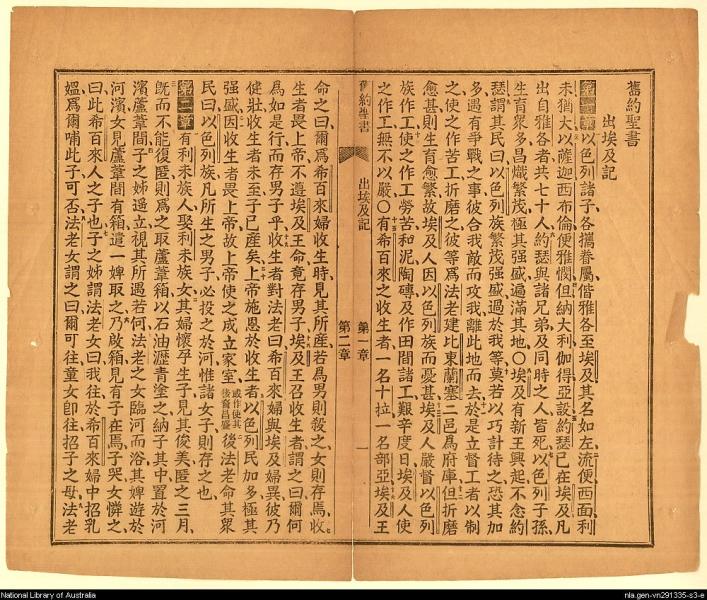 舊約聖書
出埃及記
第一章 以色列諸子各攜眷屬偕雅各至埃及其名如左流便西面利
未猶大以薩迦西布倫便雅憫但納大利伽得亞設約瑟已在埃及凡
出自雅各者共七十人約瑟與諸兄弟及同時之人皆死以色列子孫
生育衆多昌熾繁茂極其强盛遍滿其地〇埃及有新王興起不念約
瑟謂其民曰以色列族繁茂强盛過於我等莫若以巧計待之恐其加
多遇有爭戰之事彼合我敵而攻我離此地而去於是立督工者以制
之使之作苦工折磨之彼等爲法老建比東蘭塞二邑爲府庫但折磨
愈甚則生育愈繁故埃及人因以色列族而憂甚埃及人嚴督以色列
族作工使之作工勞苦和泥陶磚及作田間諸工艱辛度日埃及人使
之作工無不以嚴〇有希百來之收生者一名十拉一名部亞埃及王
舊約聖書 出埃及記 第一章 第二章 一
命之曰爾爲希百來婦收生時見其所產若爲男則殺之女則存焉收
生者畏上帝不遵埃及王命竟存男子埃及王召收生者謂之曰爾何
爲如是行而存男子乎收生者對法老曰希百來婦與埃及婦異彼乃
健壯收生者未至子已產矣上帝施恩於收生者以色列民加多極其
强盛因收生者畏上帝故上帝使之成立家室 或作使其後裔昌盛 後法老命其衆
民曰以色列族凡所生之男子必投之於河惟諸女子則存之也
第二章 有利未族人娶利未族女其婦懷孕生子見其俊美匿之三月
旣而不能復匿則爲之取蘆葦箱以石油瀝青塗之納子其中置於河
濱蘆葦間子之姊遥立視其所遇若何法老之女臨河而浴其婢遊於
河濱女見蘆葦間有箱遣一婢取之乃啟箱見有子在焉子哭女憐之
曰此希百來人之子也子之姊謂法老女曰我往於希百來婦中招乳
媼爲爾哺此子可否法老女謂之曰爾可往童女卽往招子之母法老
National Library of Australia
nla.gen-vn291335-s3-e